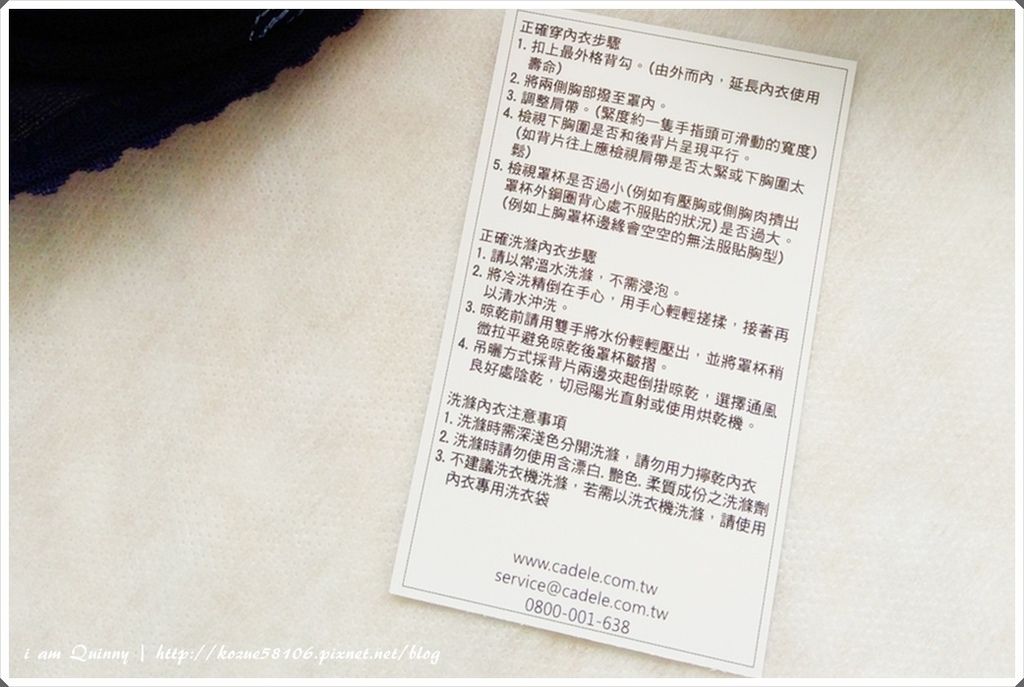 正確穿內衣步驟
1. 扣上最外格背勾。(由外而內，延長內衣使用
壽命)
2. 將兩側胸部撥至罩內。
3. 調整肩帶。(緊度約一隻手指頭可滑動的寬度)
4. 檢視下胸圍是否和後背片呈現平行。
(如背片往上應檢視肩帶是否太緊或下胸圍太
鬆)
5. 檢視罩杯是否過小(例如有壓胸或側胸肉擠出
罩杯外鋼圈背心處不服貼的狀況)是否過大。
(例如上胸罩杯邊緣會空空的無法服貼胸型)
正確洗滌內衣步驟
1. 請以常溫水洗滌，不需浸泡。
2. 將冷洗精倒在手心，用手心輕輕搓揉，接著再
以清水沖洗。
3. 晾乾前請用雙手將水份輕輕壓出，並將罩杯稍
微拉平避免晾乾後罩杯皺摺。
4. 吊曬方式採背片兩邊夾起倒掛晾乾，選擇通風
良好處陰乾，切忌陽光直射或使用烘乾機。
洗滌內衣注意事項
1. 洗滌時需深淺色分開洗滌，請勿用力擰乾內衣
2. 洗滌時請勿使用含漂白. 艷色. 柔質成份之洗滌劑
3. 不建議洗衣機洗滌，若需以洗衣機洗滌，請使用
內衣專用洗衣袋
www.cadele.com.tw
service@cadele.com.tw
0800-001-638
i am Quinny | http://kozue58106.pixnet.net/blog